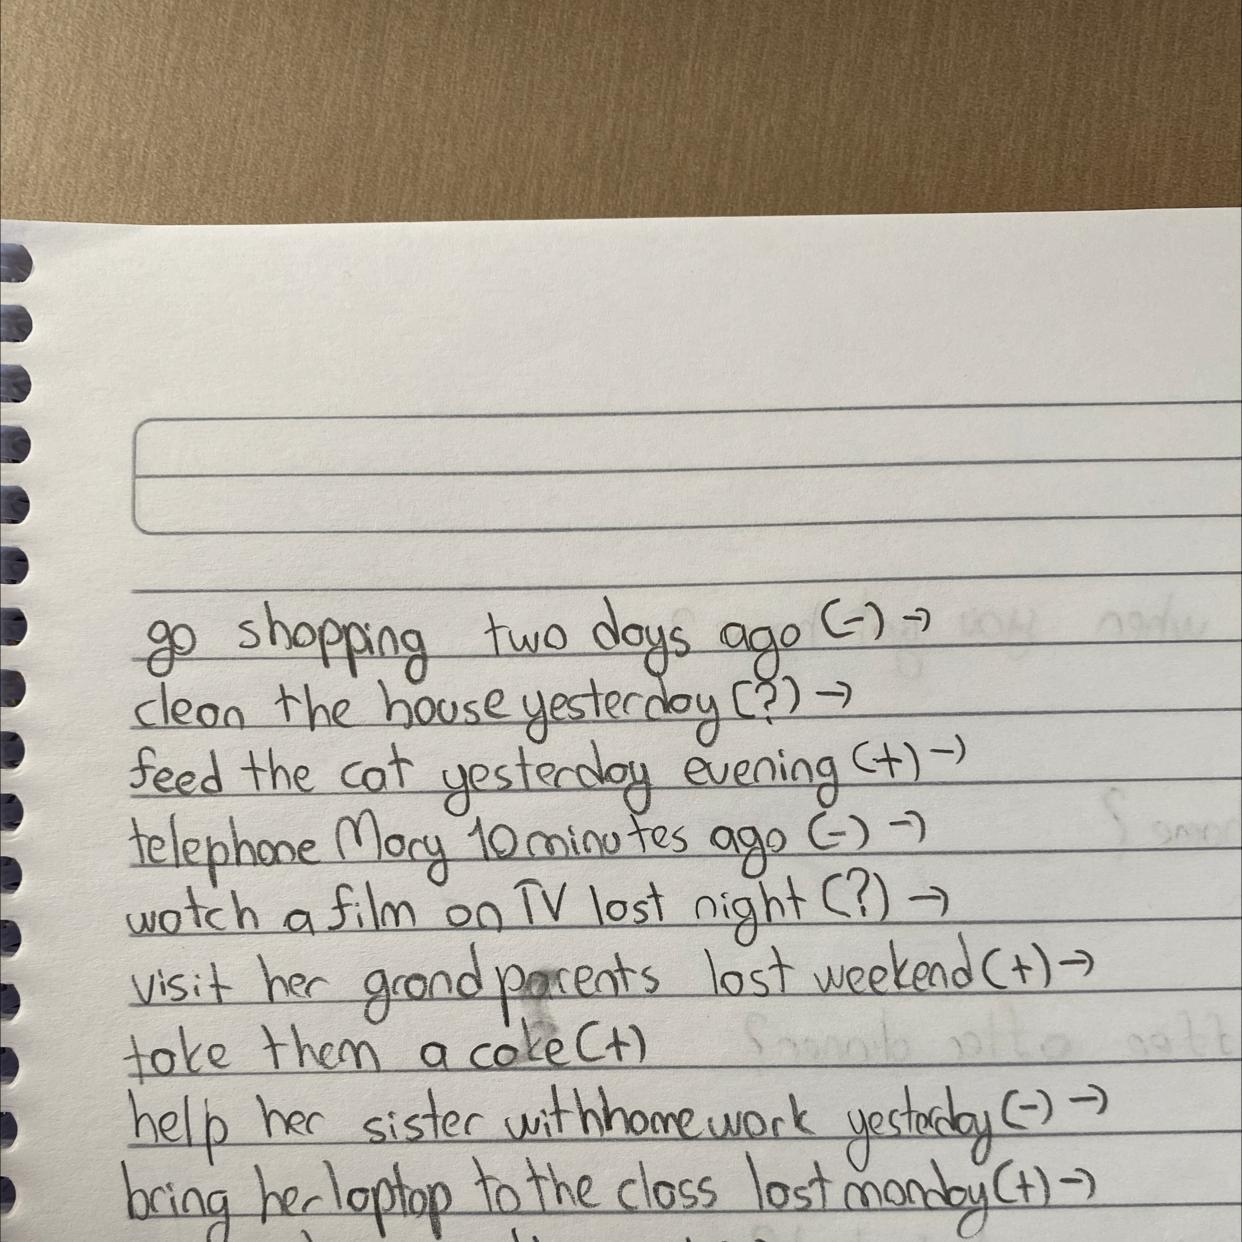 go shopping two days ago (-) →
clean the house yesterday (?) →
feed the cat yesterday evening (+) →
telephone Mary 10 minutes ago (-) →
watch a film on TV last night (?) →
visit her grandparents last weekend (+) →
take them a cake (+)
help her sister with homework yesterday (-) →
bring her laptop to the class last monday (+) →